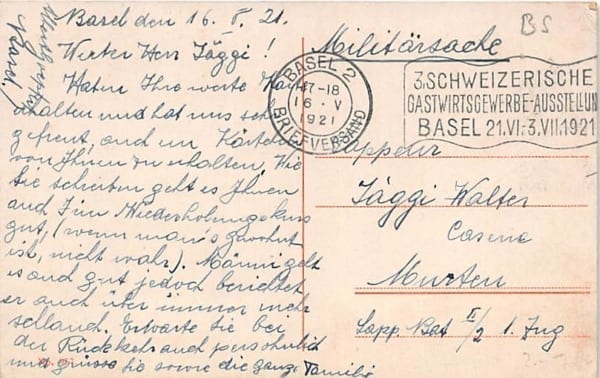 Basel den 16. V. 21.
Werter Herr Jäggi!
Haben Ihre werte Karte
erhalten und hat uns sehr
gefreut, auch ein Kärtchen
von Ihnen zu erhalten. Wie
Sie schreiben geht es Ihnen
auch im Wiederholungskurs
gut, (wenn man's gewohnt
ist, nicht wahr). Männi geht
es auch gut jedoch berichtet
er auch über immer
Erwarte Sie bei
der Rückkehr auch persönlich
und grüsse Sie sowie die ganze Familie
Militärsache
BASEL 2
17-18
16·V
1921
BRIEFVERSAND
3. SCHWEIZERISCHE
GASTWIRTSGEWERBE-AUSSTELLUN
BASEL 21.VI.-3.VII.1921
Sappeur
Jäggi Walter
Caserne
Murten
Sapp. Bat II/2 1. Zug
BS